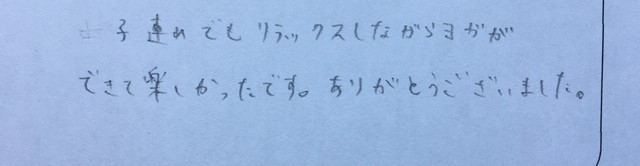 子連れでもリラックスしながらヨガが
できて楽しかったです。ありがとうございました。